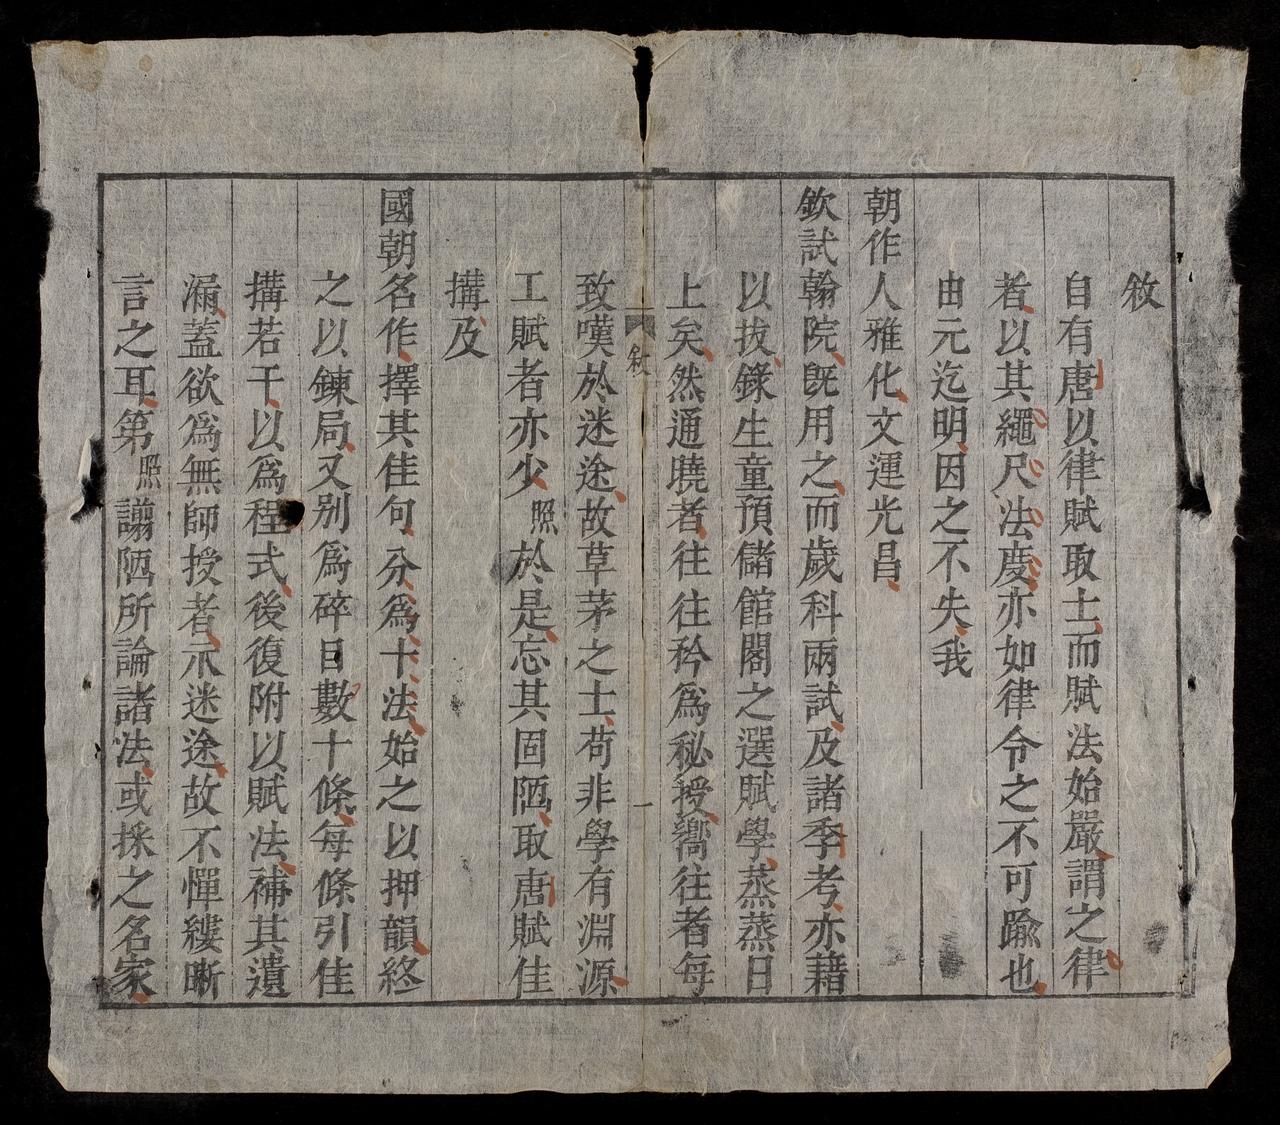 敘
自有唐以律賦取士而賦法始嚴謂之律
者以其繩尺法度亦如律令之不可踰也
由元迄明因之不失我
朝作人雅化文運光昌
欽試翰院旣用之而歲科兩試及諸季考亦藉
以拔錄生童預儲館閣之選賦學蒸蒸日
上矣然通曉者往往矜爲秘授嚮往者每
敘
一
致嘆於迷途故草茅之士苟非學有淵源
工賦者亦少照於是忘其固陋取唐賦佳
搆及
國朝名作擇其佳句分爲十法始之以押韻終
之以鍊局又别爲碎目數十條每條引佳
搆若干以爲程式後復附以賦法補其遺
漏蓋欲爲無師授者示迷途故不憚縷晰
言之耳第照譾陋所論諸法或採之名家